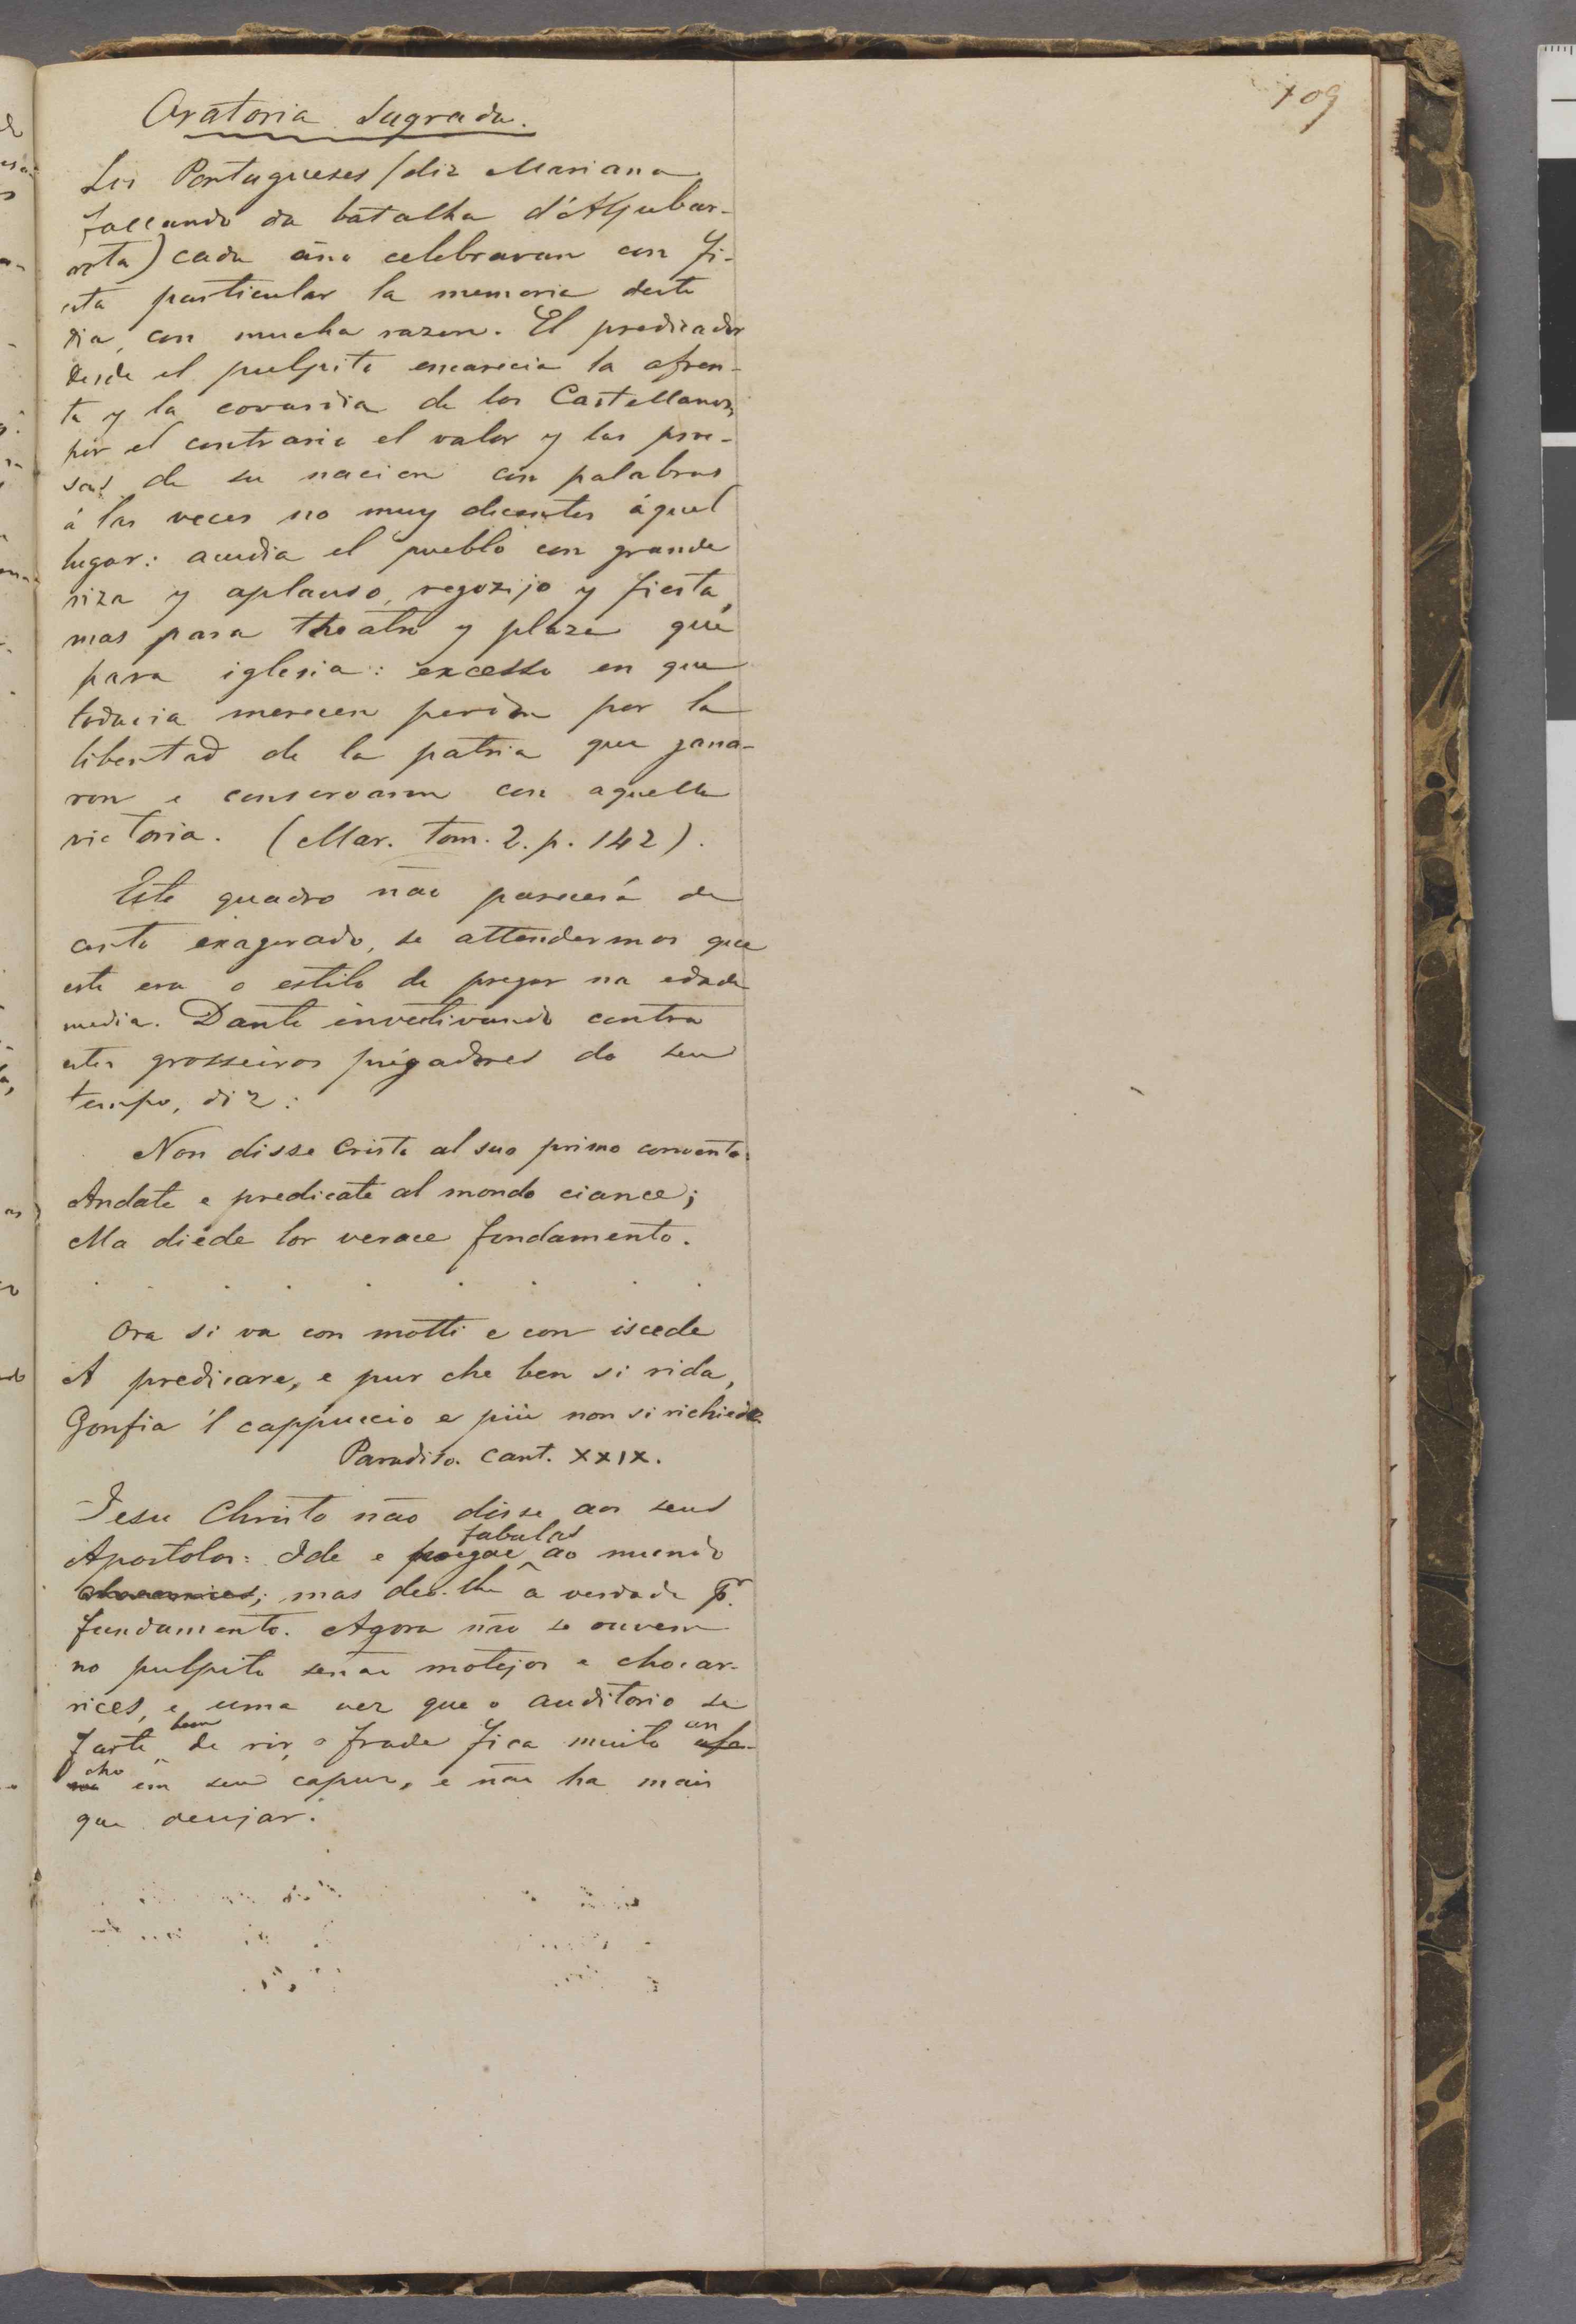 109
Oratoria Sagrada.
Los Portugueses (diz Mariana
fallando da batalha d'Aljubar-
rota) cada año celebravan con fi-
esta particular la memoria deste
dia, con mucha razon. El predicador
desde el pulpito encarecia la afren-
ta y la covardia de los Castellanos,
por el contrario el valor y las proe-
sas de su nacion con palabras
á las veces no muy decentes áquel
lugar: acudia el pueblo con grande
riza y aplauso, regozijo y fiesta,
mas para theatro y plaza que
para iglesia: excesso en que
todavia merecen perdon por la
libertad de la patria que gana-
ron e conservaron con aquella
victoria. (Mar. tom. 2. p. 142).
Este quadro não parecerá de
certo exagerado, se attendermos que
este era o estilo de pregar na edade
media. Dante invectivando contra
estes grosseiros prégadores do seu
tempo, diz:
Non disse Cristo al suo primo convento:
Andate e predicate al mondo ciance;
Ma diéde lor verace fondamento.
. . . . . . . .
Ora si va con motti e con iscede
A predicare, e pur che ben si rida,
Gonfia 'l cappuccio e più non si richiede
Paradiso. Cant. XXIX.
Jesu Christo não disse aos seus
Apostolos: Ide e pregae fabulas ao mundo
; mas deo-lhe a verdade pr.
fundamento. Agora não se ouvem
no pulpito senão motejos e chocar-
rices, e uma vez que o auditorio se
farte bem de rir, o frade fica muito an
cho em seu capuz, e não ha mais
que desejar.